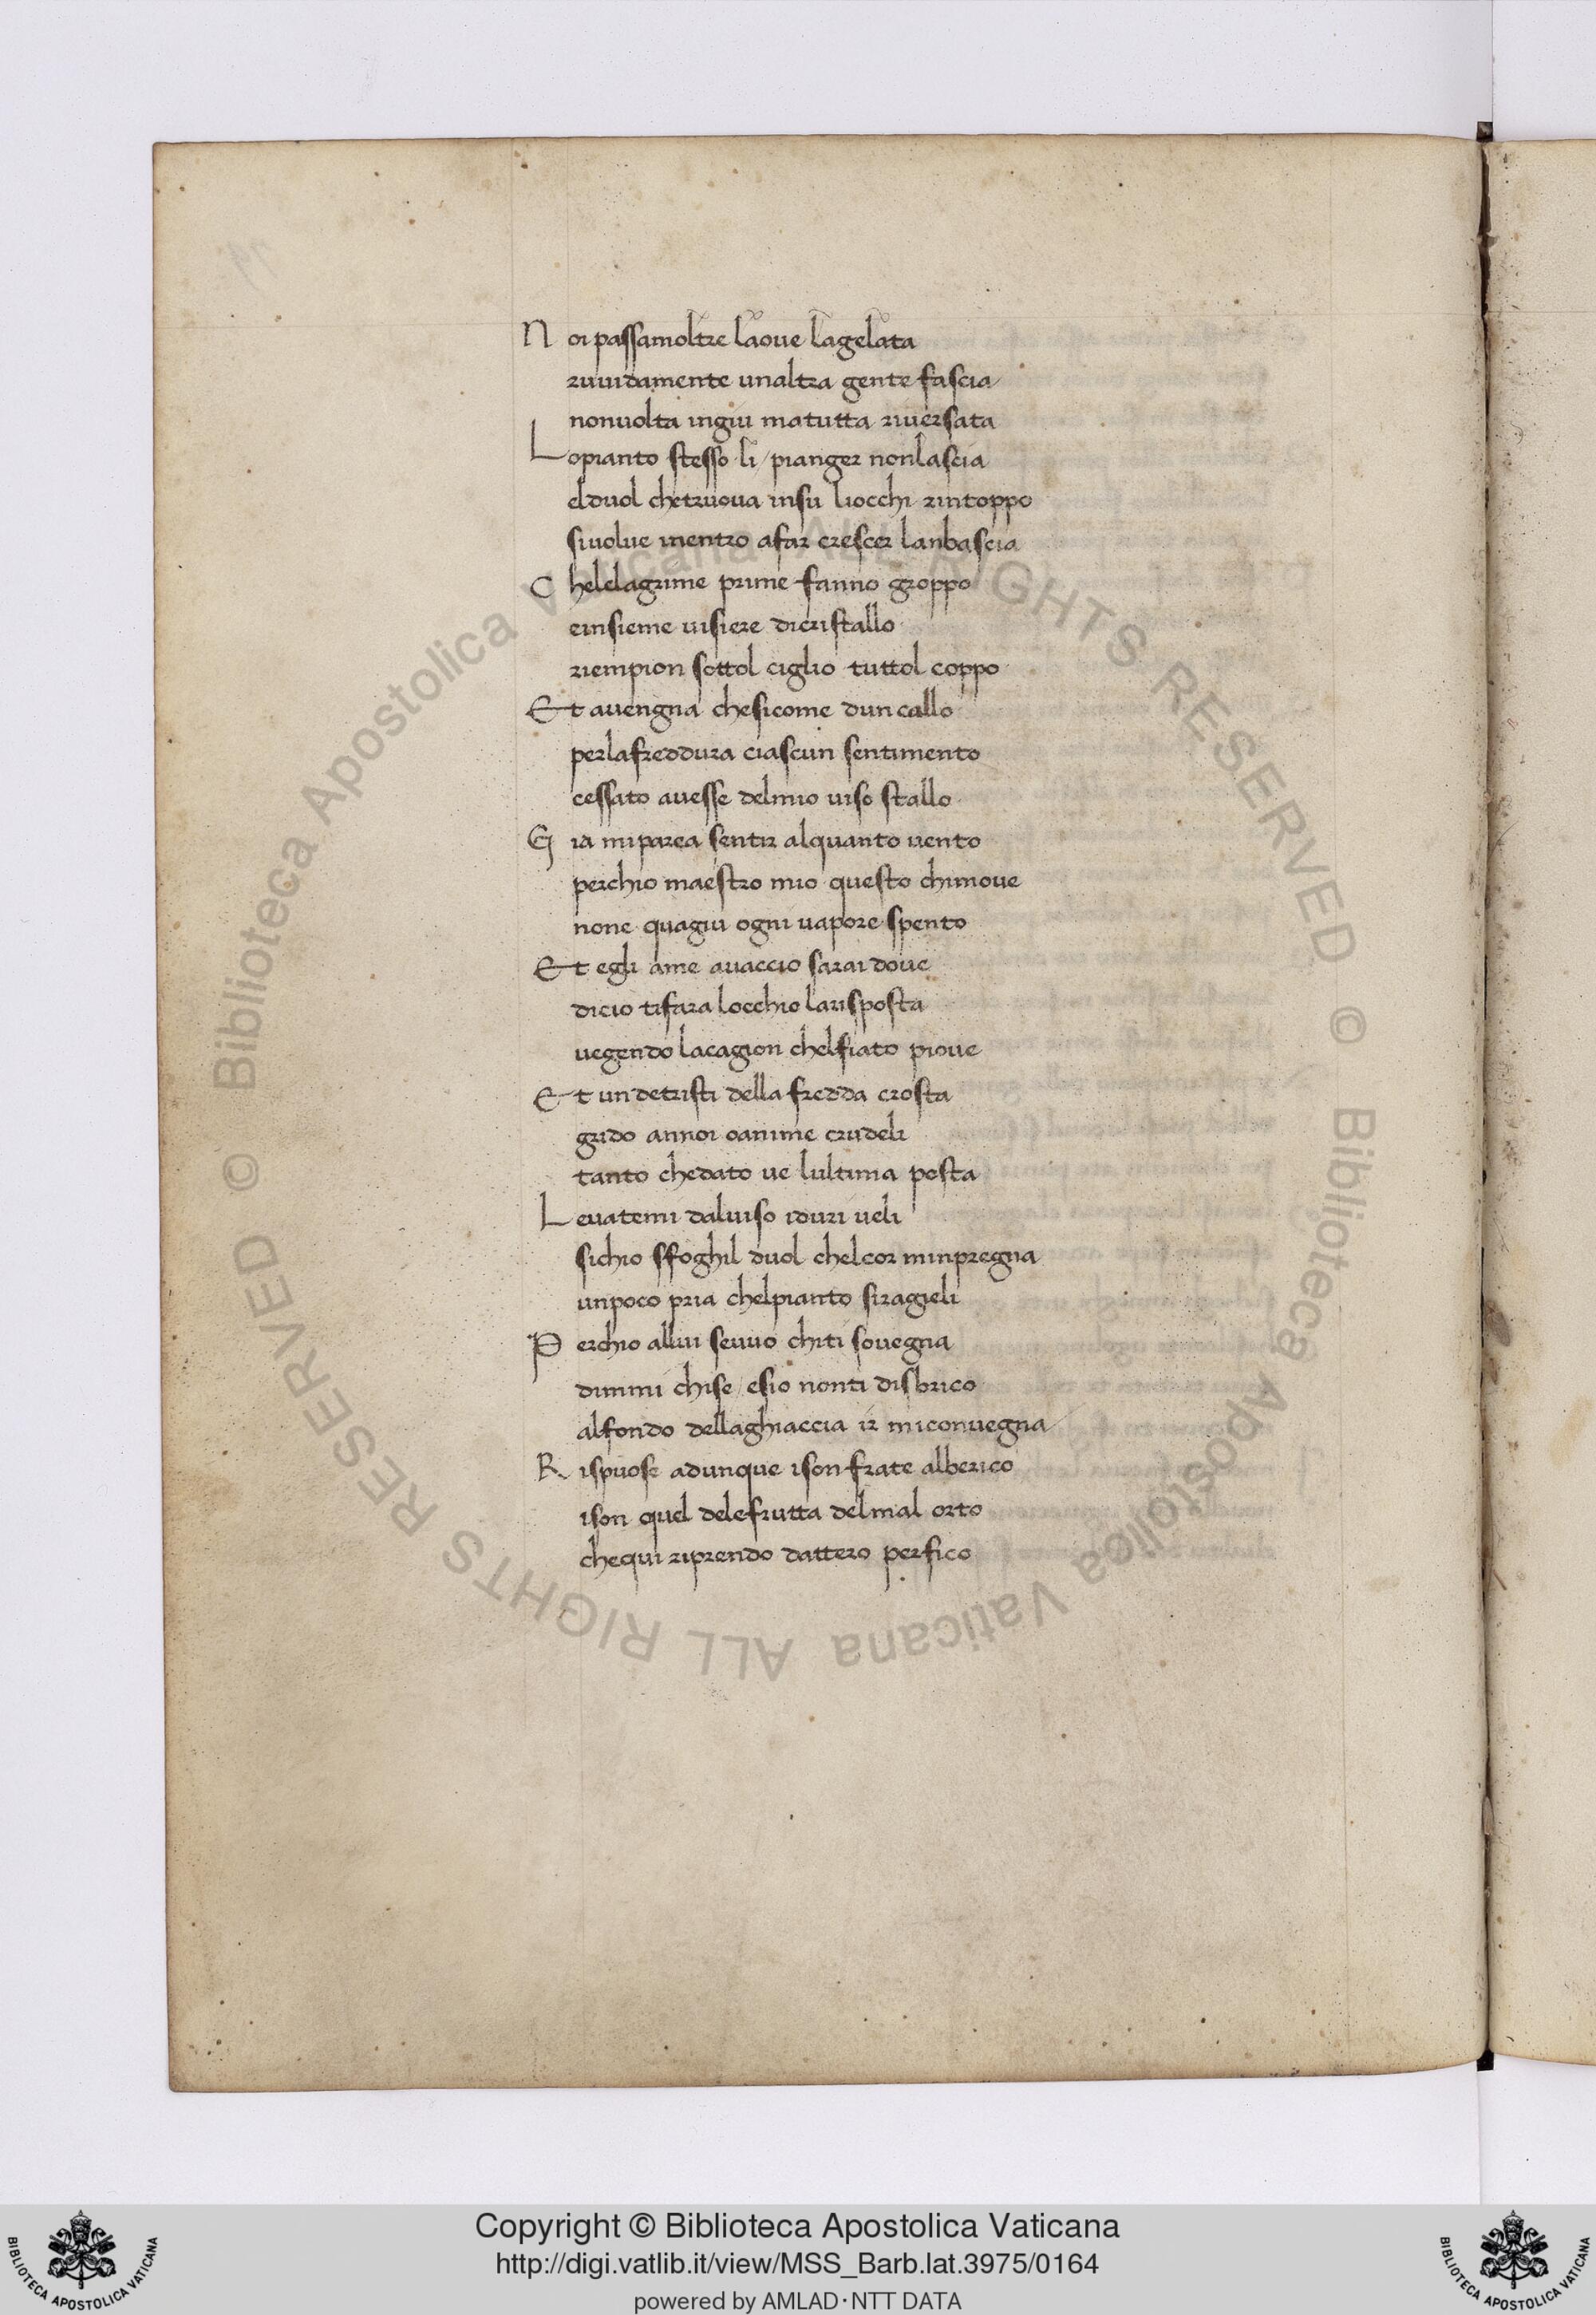 Noi passamoltre laove lagelata
ruvidamente unaltra gente fascia
nonvolta ingiu matutta riversata
Lopianto stesso li pianger nonlascia
elduol chetruova insu liocchi rintoppo
sivolve inentro afar crescer lanbascia
Chelelagrime prime fanno groppo
einsieme visiere dicristallo
riempion sottol ciglio tuttol coppo
Et avengna chesicome dun callo
perlafreddura ciascun sentimento
cessato avesse delmio viso stallo
Gia miparea sentir alquanto vento
perchio maestro mio questo chimove
none quagiu ogni vapore spento
Et egli ame avaccio sarai dove
dicio tifara locchio larisposta
vegendo lacagion chelfiato piove
Et un detristi della fredda crosta
grido annoi oanime crudeli
tanto chedato ve lultima posta
Levatemi dalviso iduri veli
sichio sfoghil duol chelcor minpregna
unpoco pria chelpianto siragieli
Perchio allui sevuo chiti sovegna
dimmi chise / esio nonti disbrico
alfondo dellaghiaccia ir miconvegna
Rispuose adunque ison frate alberico
ison quel delefrutta delmal orto
chequi riprendo dattero perfico
© Biblioteca Apostolica Vaticana ALL RIGHTS RESERVED © Biblioteca Apostolica Vaticana ALL RIGHTS RESERVED
BIBLIOTECA APOSTOLICA VATICANA
Copyright © Biblioteca Apostolica Vaticana
http://digi.vatlib.it/view/MSS_Barb.lat.3975/0164
powered by AMLAD·NTT DATA
BIBLIOTECA APOSTOLICA VATICANA